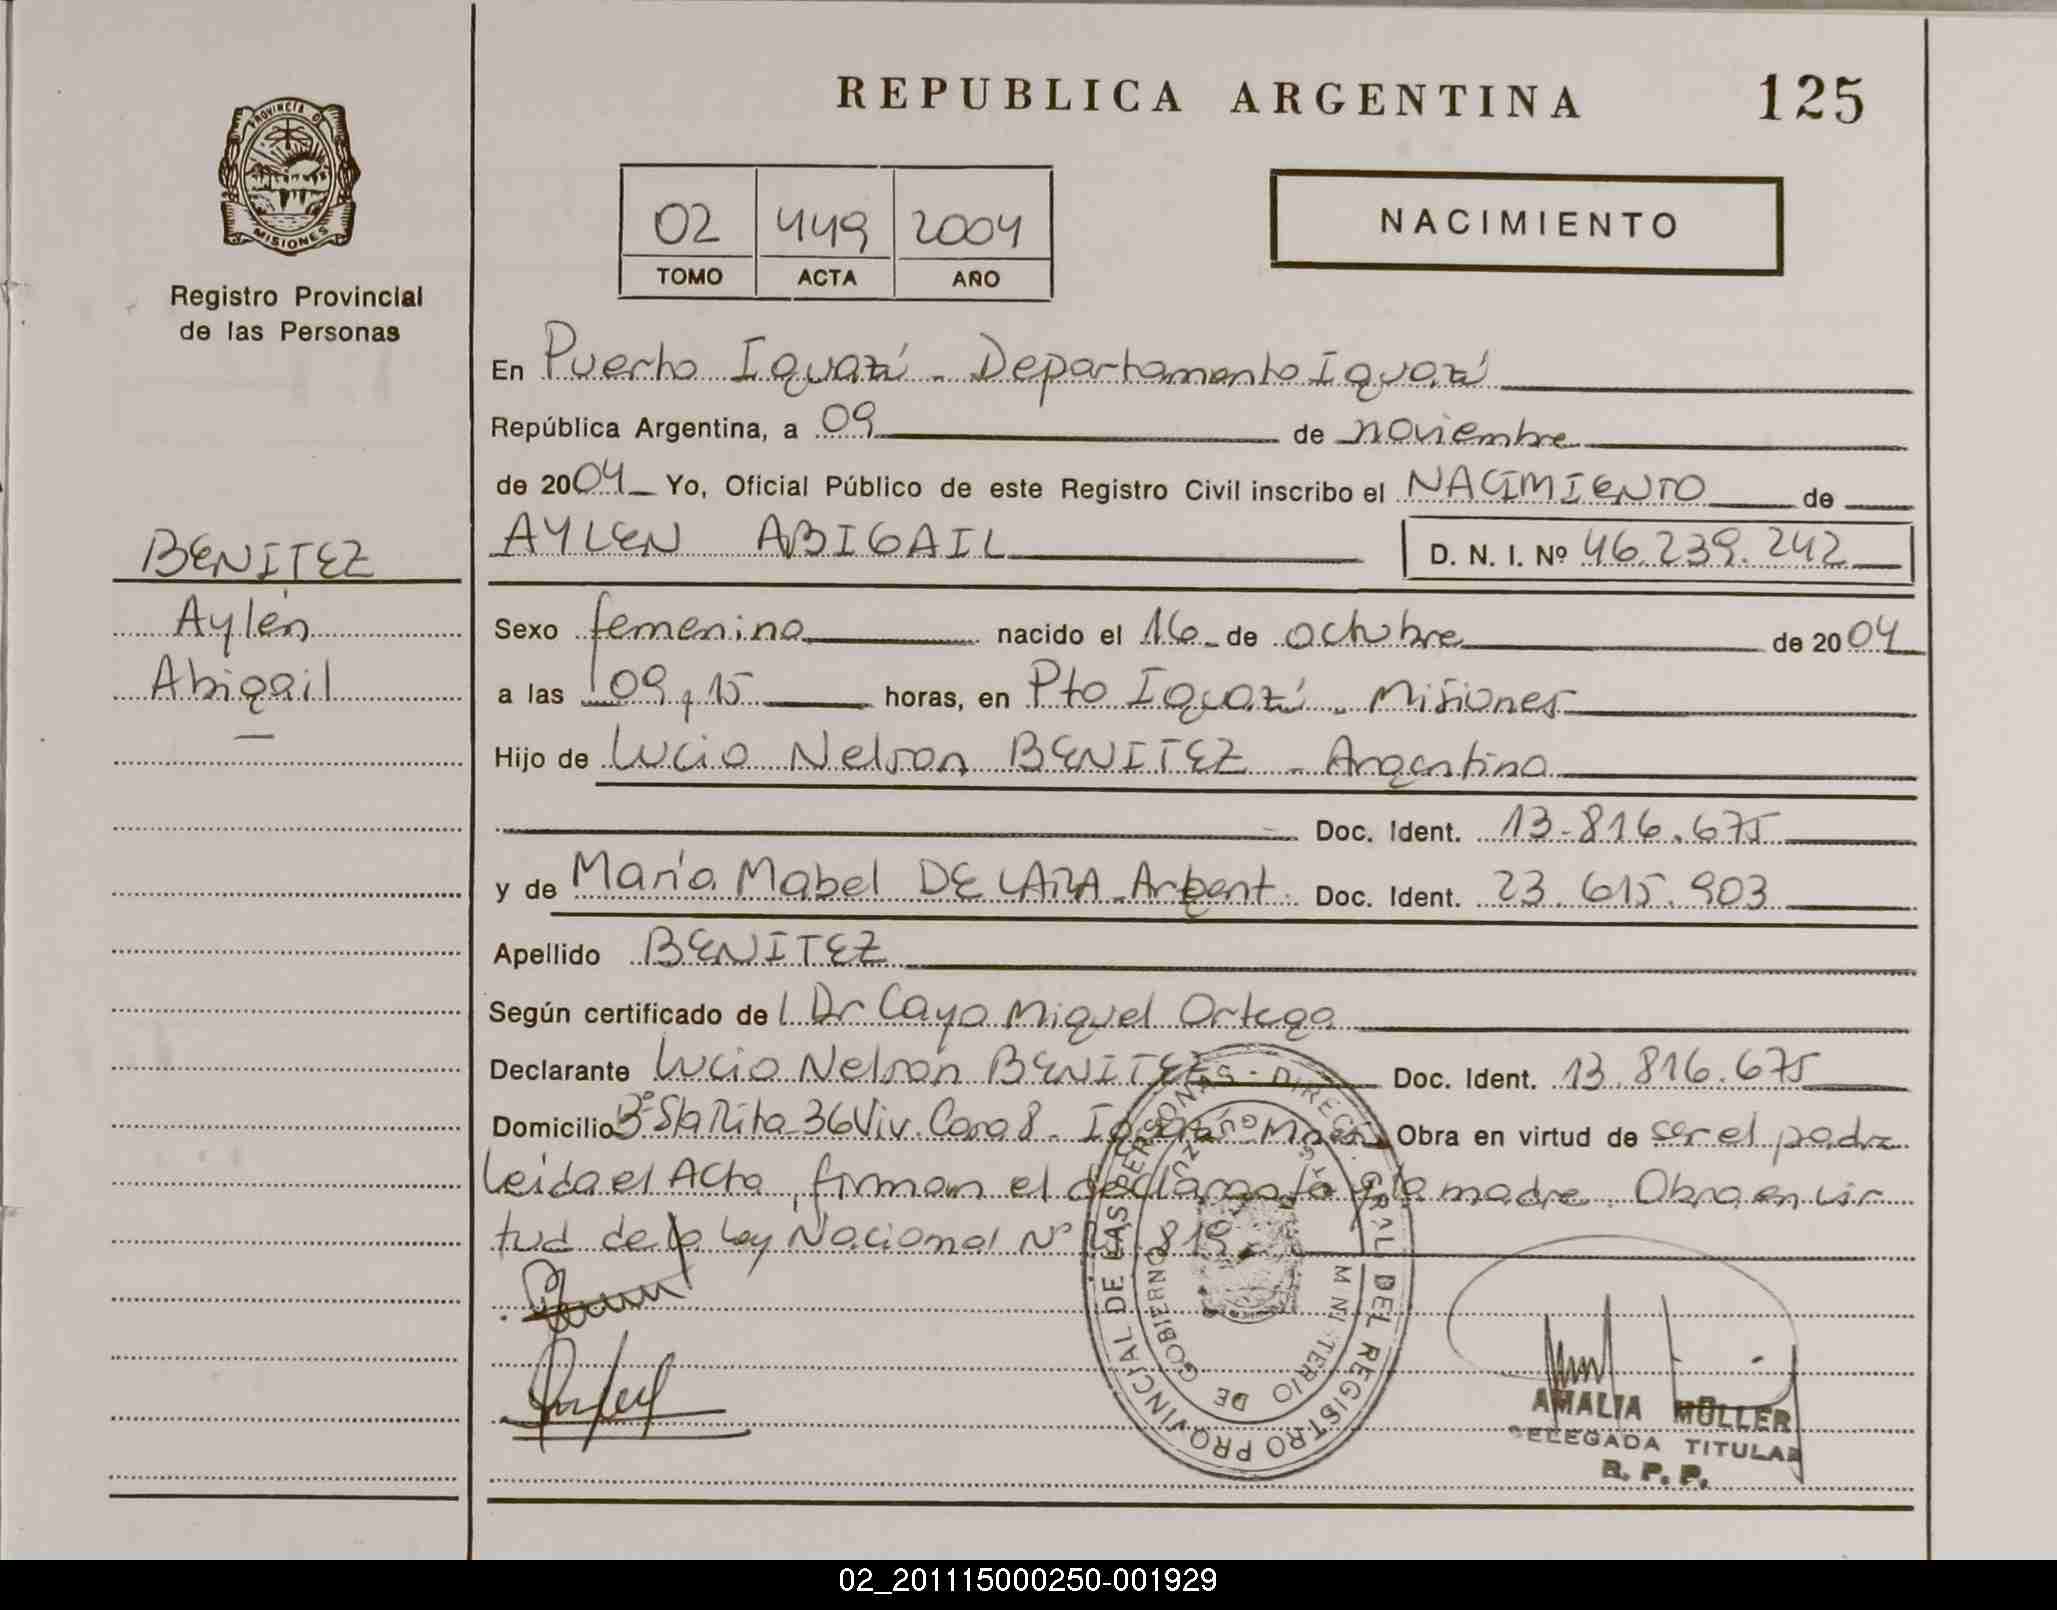 REPUBLICA ARGENTINA 125
PROVINCIA D
MISIONES
Registro Provincial
de las Personas
02 449 2004
TOMO ACTA AÑO
NACIMIENTO
En Puerto Iguazú - Departamento Iguazú
República Argentina, a 09 de noviembre
de 2004 Yo, Oficial Público de este Registro Civil inscribo el NACIMIENTO de
AYLEN ABIGAIL D. N. I. Nº 46.239.242
BENITEZ
Aylén
Abigail
Sexo femenino nacido el 16 de octubre de 2004
a las 09 y 15 horas, en Pto Iguazú - Misiones
Hijo de Lucio Nelson BENITEZ - Argentino
Doc. Ident. 13.816.675
y de María Mabel DE LARA - Argent. Doc. Ident. 23.615.903
Apellido BENITEZ
Según certificado del Dr Cayo Miguel Ortega
Declarante Lucio Nelson BENITEZ Doc. Ident. 13.816.675
Domicilio Bº Sta Rita 36 Viv. Casa 8 - Obra en virtud de ser el padre
Leida el Acta, firman el declarante y la madre. Obra en vir
tud de la Ley Nacional Nº
DIREC. GRAL DEL REGISTRO PROVINCIAL DE LAS PERSONAS
MINISTERIO DE GOBIERNO
AMALIA MÜLLER
DELEGADA TITULAR
R. P. P.
02_201115000250-001929